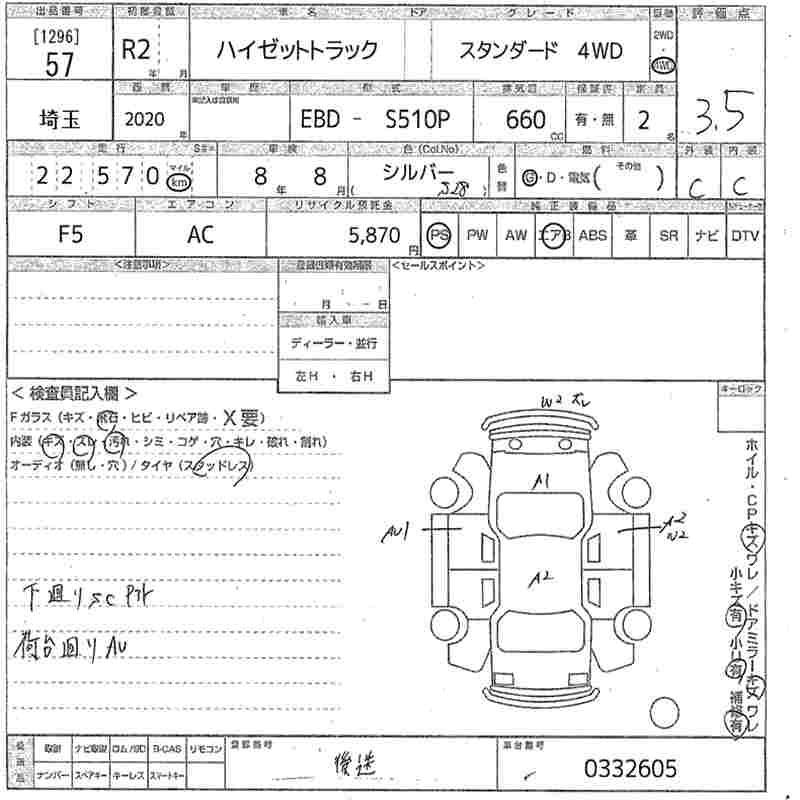 出品番号 初度登録 車名 ドア グレード 駆動 評価点
[1296] 57 R2 年 月 ハイゼットトラック スタンダード 4WD 2WD 4WD 3.5
車歴 型式 排気量 保証書 定員
埼玉 2020 年 EBD - S510P 660 CC 有・無 2 名
走行 車検 色(Col.No) 色替 燃料 外装 内装
22,570 マイル km 8 年 8 月 シルバー ( S28 ) G・D・電気( その他 ) C C
シフト エアコン リサイクル預託金 純正装備品
F5 AC 5,870 円 PS PW AW エアB ABS 革 SR ナビ DTV
<注意事項> <セールスポイント>
月 日
輸入車
ディーラー・並行
左H ・ 右H
< 検査員記入欄 > キーロック
Fガラス (キズ・飛石・ヒビ・リペア跡・X要)
内装 (キズ・スレ・汚れ・シミ・コゲ・穴・キレ・破れ・割れ)
オーディオ (無し・穴) / タイヤ (スタッドレス)
W2 ズレ
A1
AU1
A2
W2
A2
下廻りSC Pアト
荷台回りAU
ホイル・CPキズワレ / ドアミラーキズワレ
小キズ有 / 小凹有 / 補修有
取説 ナビ取説 ロム/SD B-CAS リモコン 登録番号 車台番号
ナンバー スペアキー キーレス スマートキー 後送 0332605